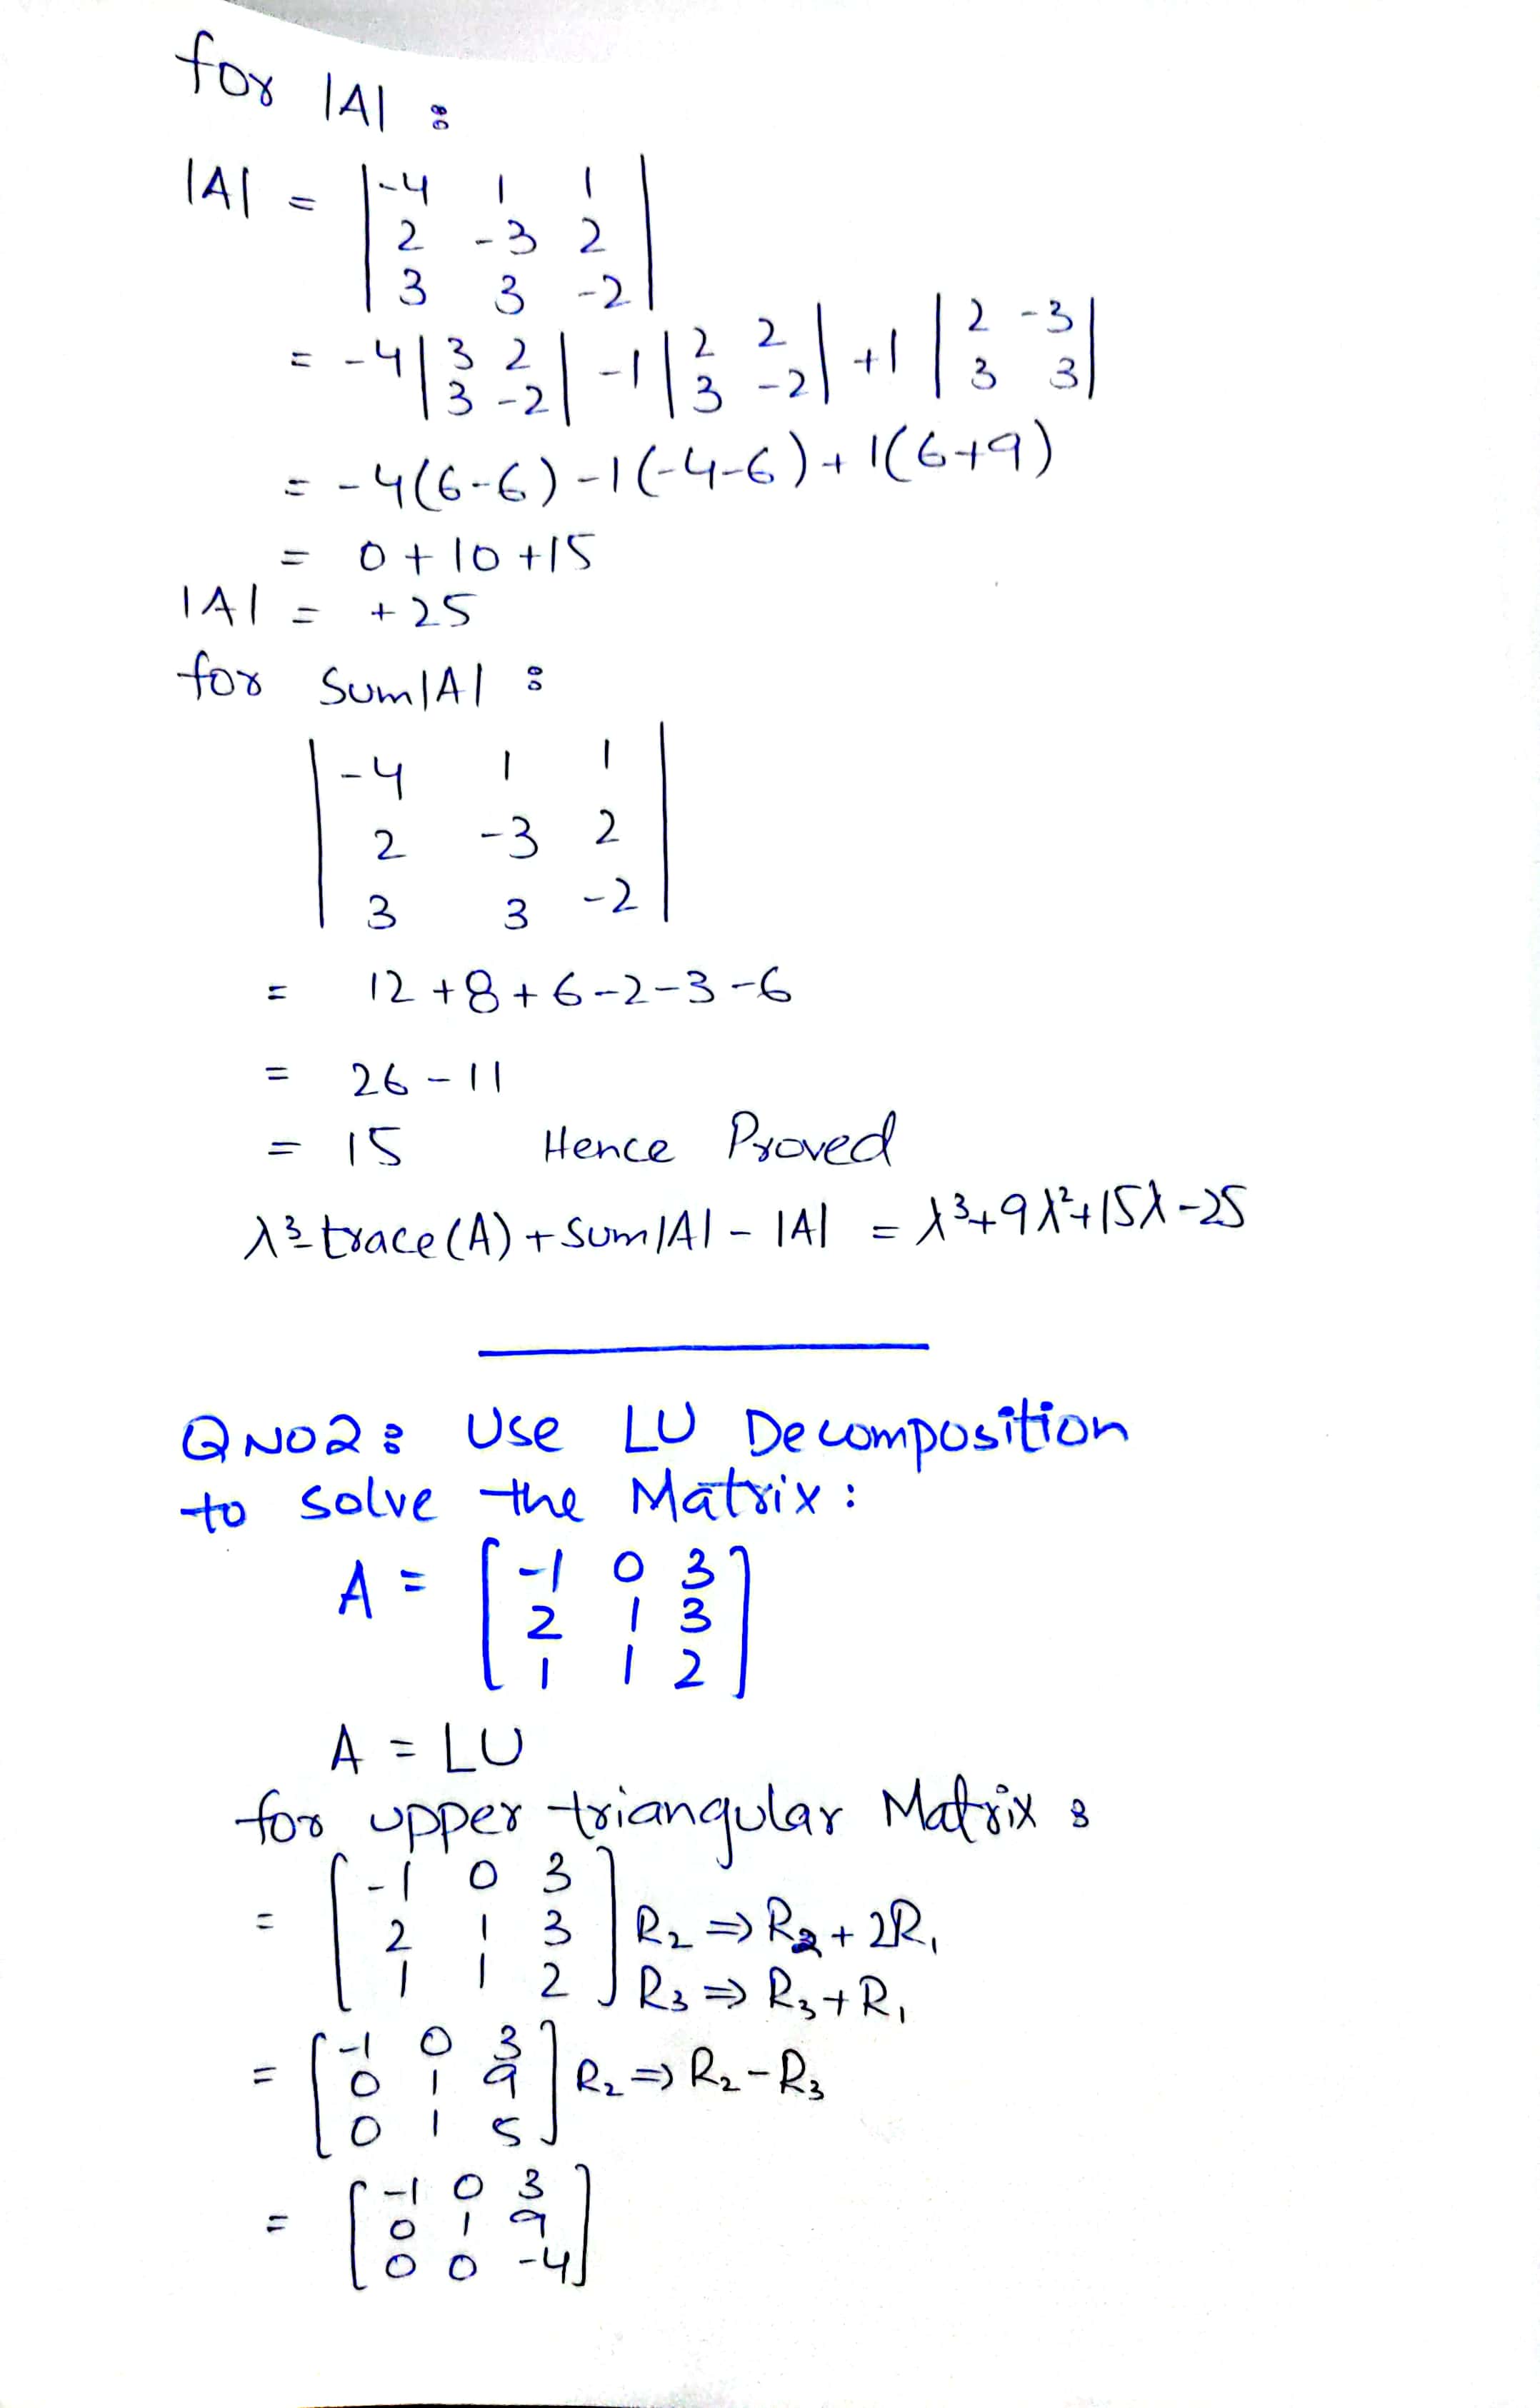 for |A| :
|A| = |-4 1 1|
|2 -3 2|
|3 3 -2|
= -4 |3 2| -1 |2 2| +1 |2 -3|
|3 -2| |3 -2| |3 3|
= -4(6-6) -1(-4-6) + 1(6+9)
= 0 + 10 +15
|A| = +25
for Sum|A| :
|-4 1 1|
|2 -3 2|
|3 3 -2|
= 12 +8 + 6 -2 -3 -6
= 26 - 11
= 15 Hence Proved
λ³- trace(A) + Sum|A| - |A| = λ³+9λ²+15λ-25
QNO2: Use LU Decomposition
to solve the Matrix :
A = [-1 0 3]
[2 1 3]
[1 1 2]
A = LU
for upper triangular Matrix :
= [-1 0 3]
[2 1 3] R₂ ⇒ R₂ + 2R₁
[1 1 2] R₃ ⇒ R₃ + R₁
= [-1 0 3]
[0 1 9] R₂ ⇒ R₂ - R₃
[0 1 5]
= [-1 0 3]
[0 1 9]
[0 0 -4]